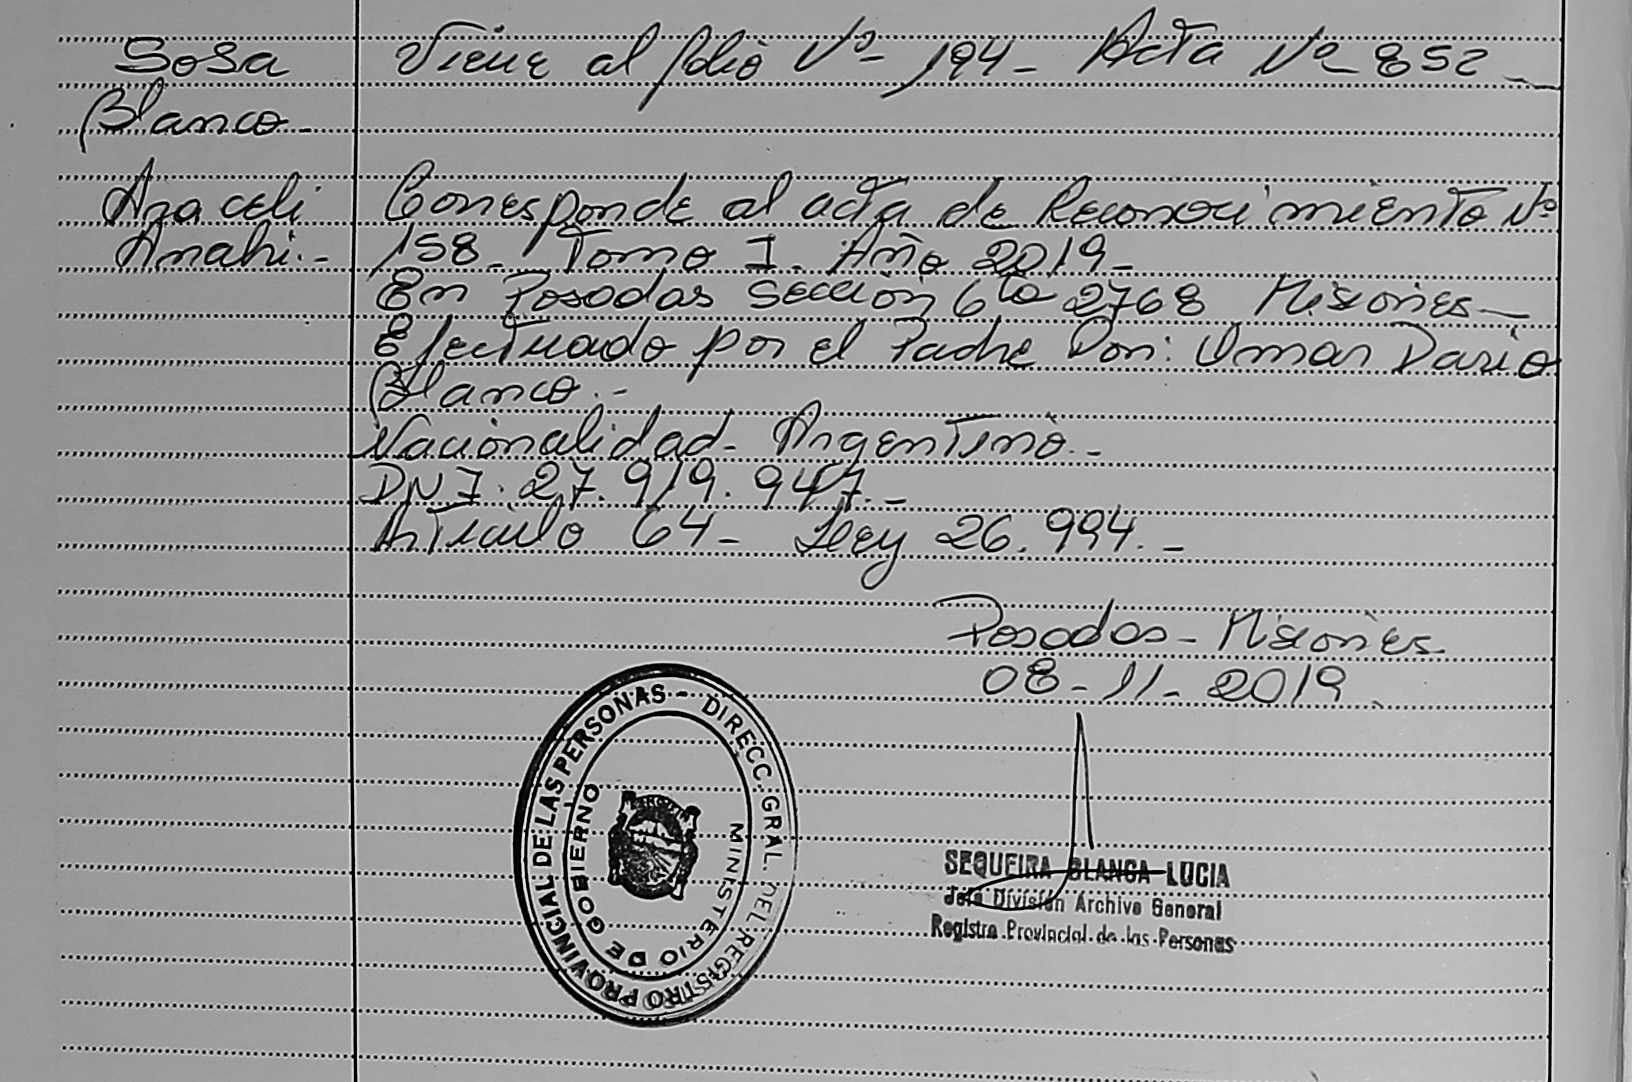 Sosa Viene al folio Nº 194 - Acta Nº 852 -
Blanco -
Araceli Corresponde al acta de Reconocimiento Nº
Anahi. - 158 - Tomo I. Año 2019 -
En Posadas Sección 6ta 2768 Misiones -
Efectuado por el Padre Don: Omar Dario
Blanco. -
Nacionalidad - Argentino. -
DNI. 27.919.947. -
Articulo 64 - Ley 26.994. -
Posadas - Misiones
08 - 11 - 2019
DIRECC. GRAL. DEL REGISTRO PROVINCIAL DE LAS PERSONAS -
MINISTERIO DE GOBIERNO
SEQUEIRA BLANCA LUCIA
Jefa División Archivo General
Registro Provincial de las Personas